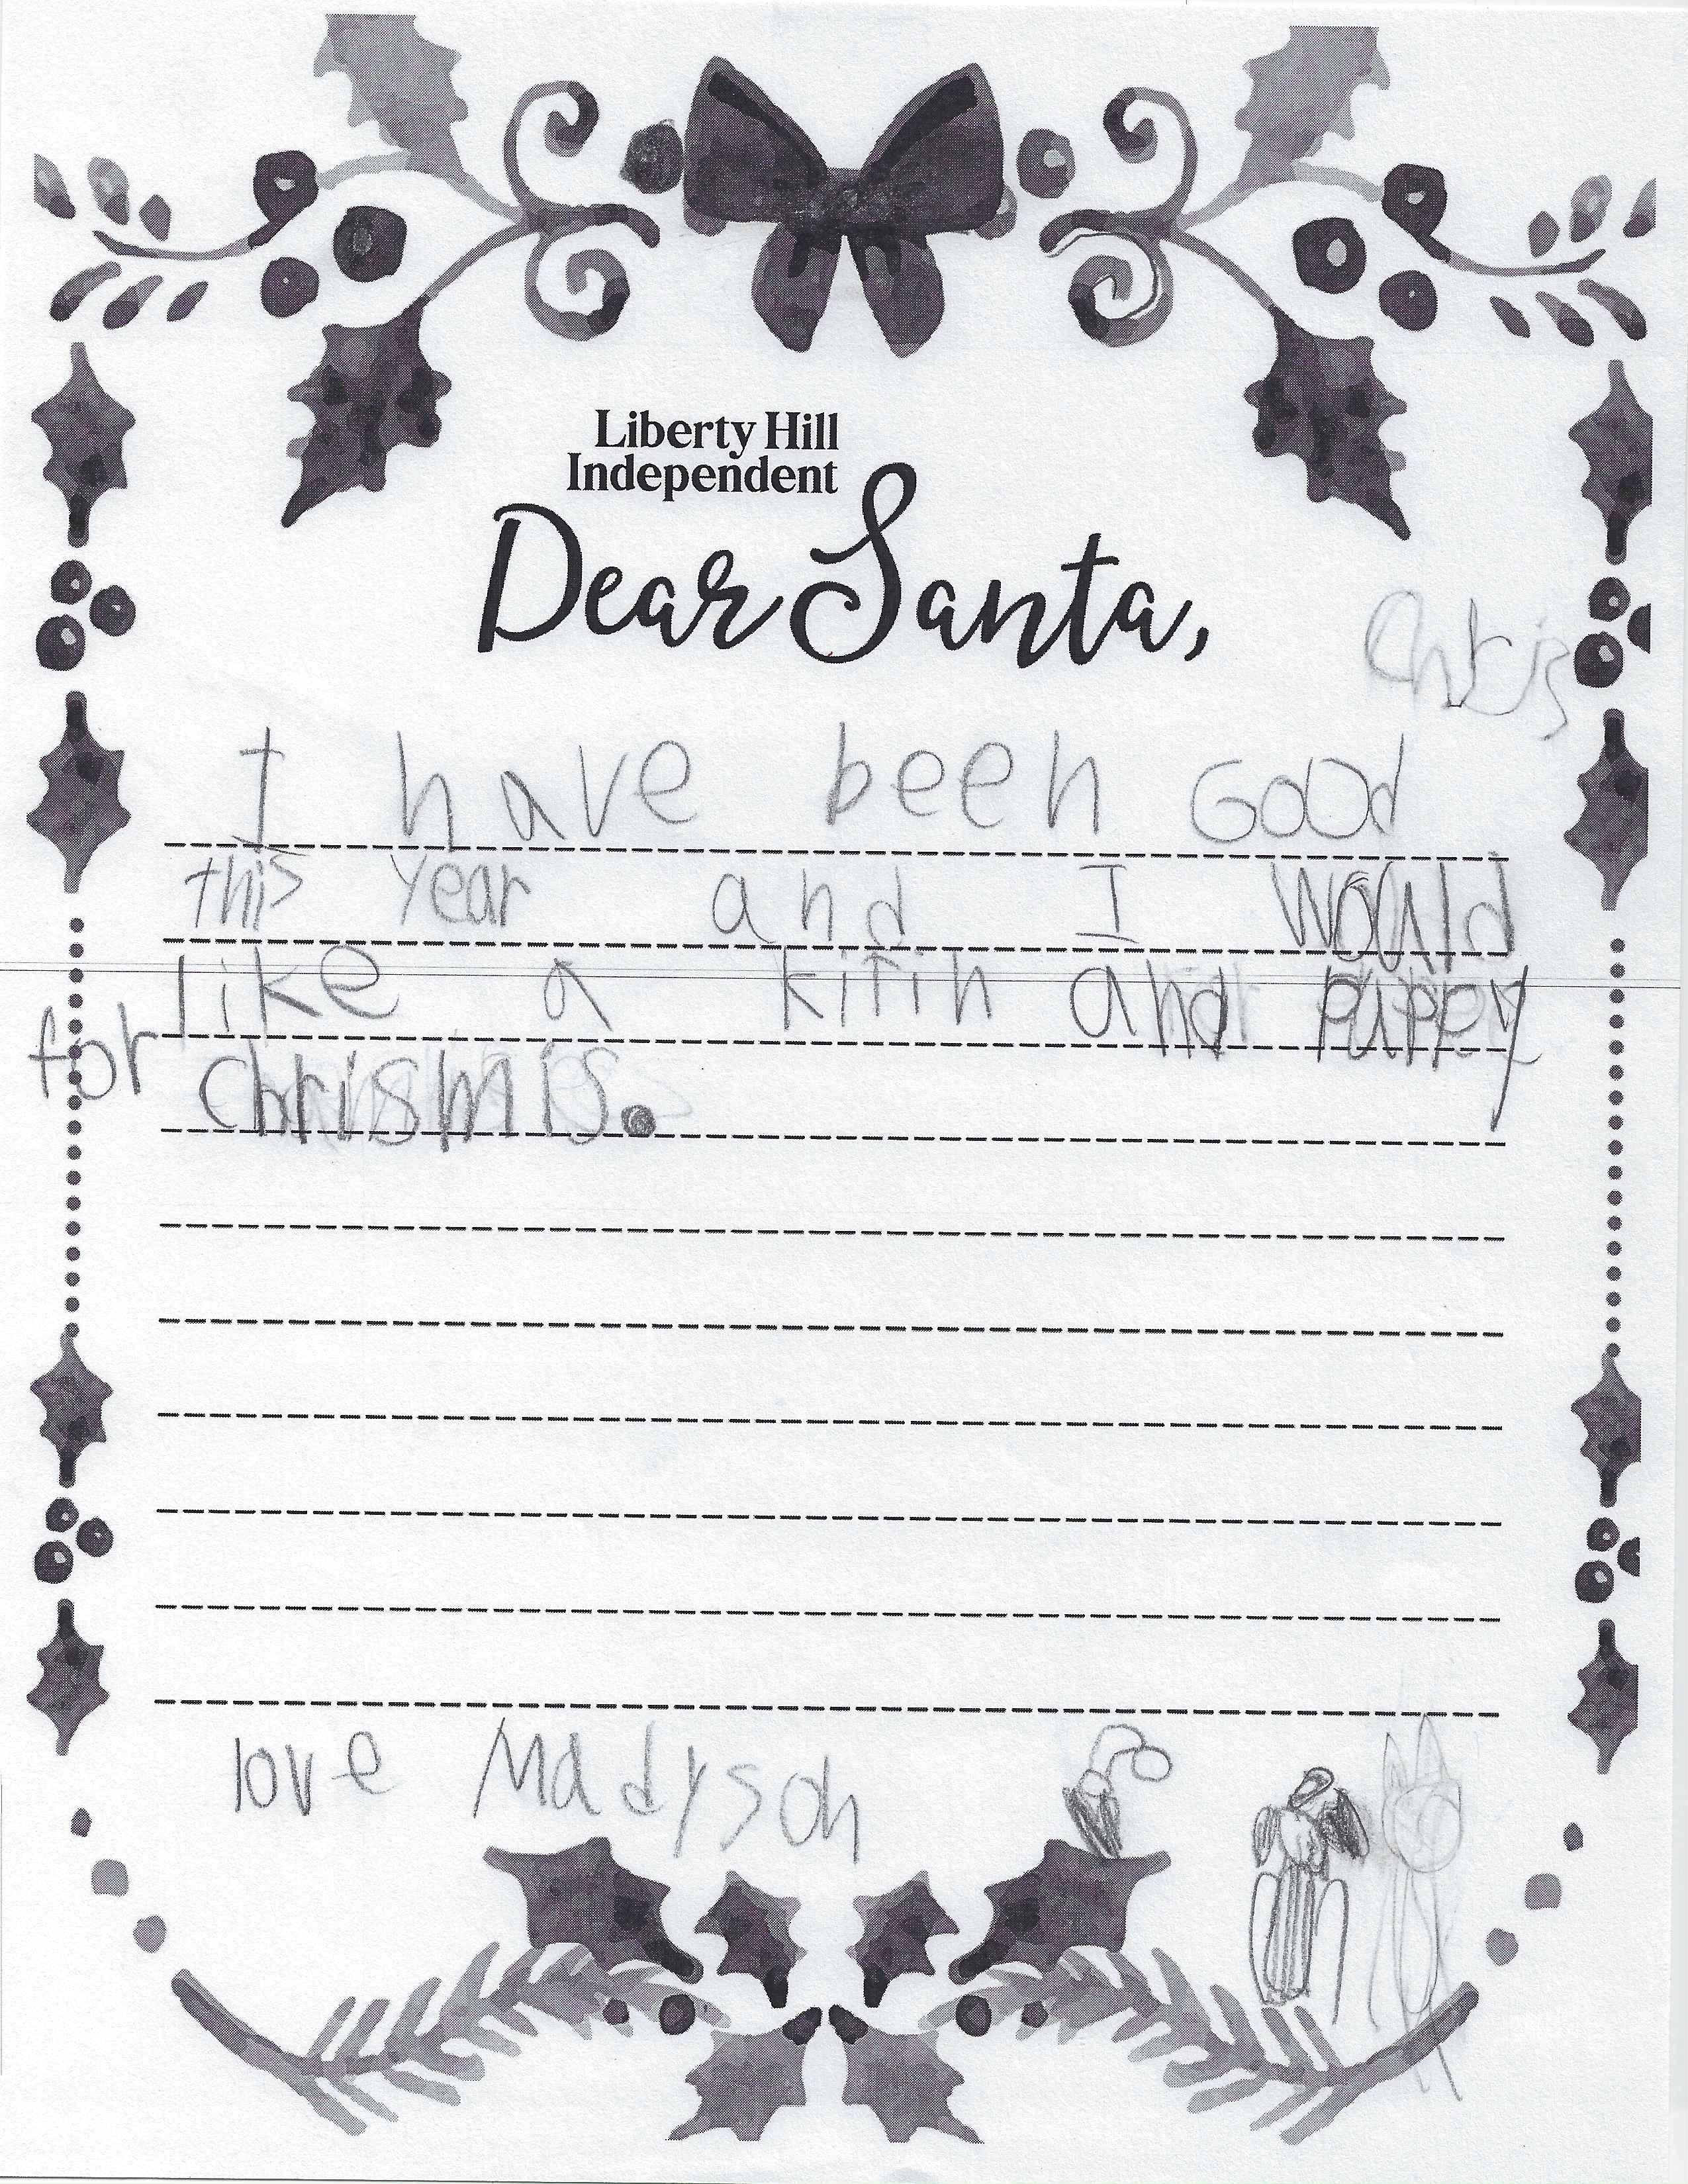 Liberty Hill
Independent
Dear Santa,
Chris
I have been GOOd
this year and I would
like a kitin and puppy
for chrismis.
love Madyson